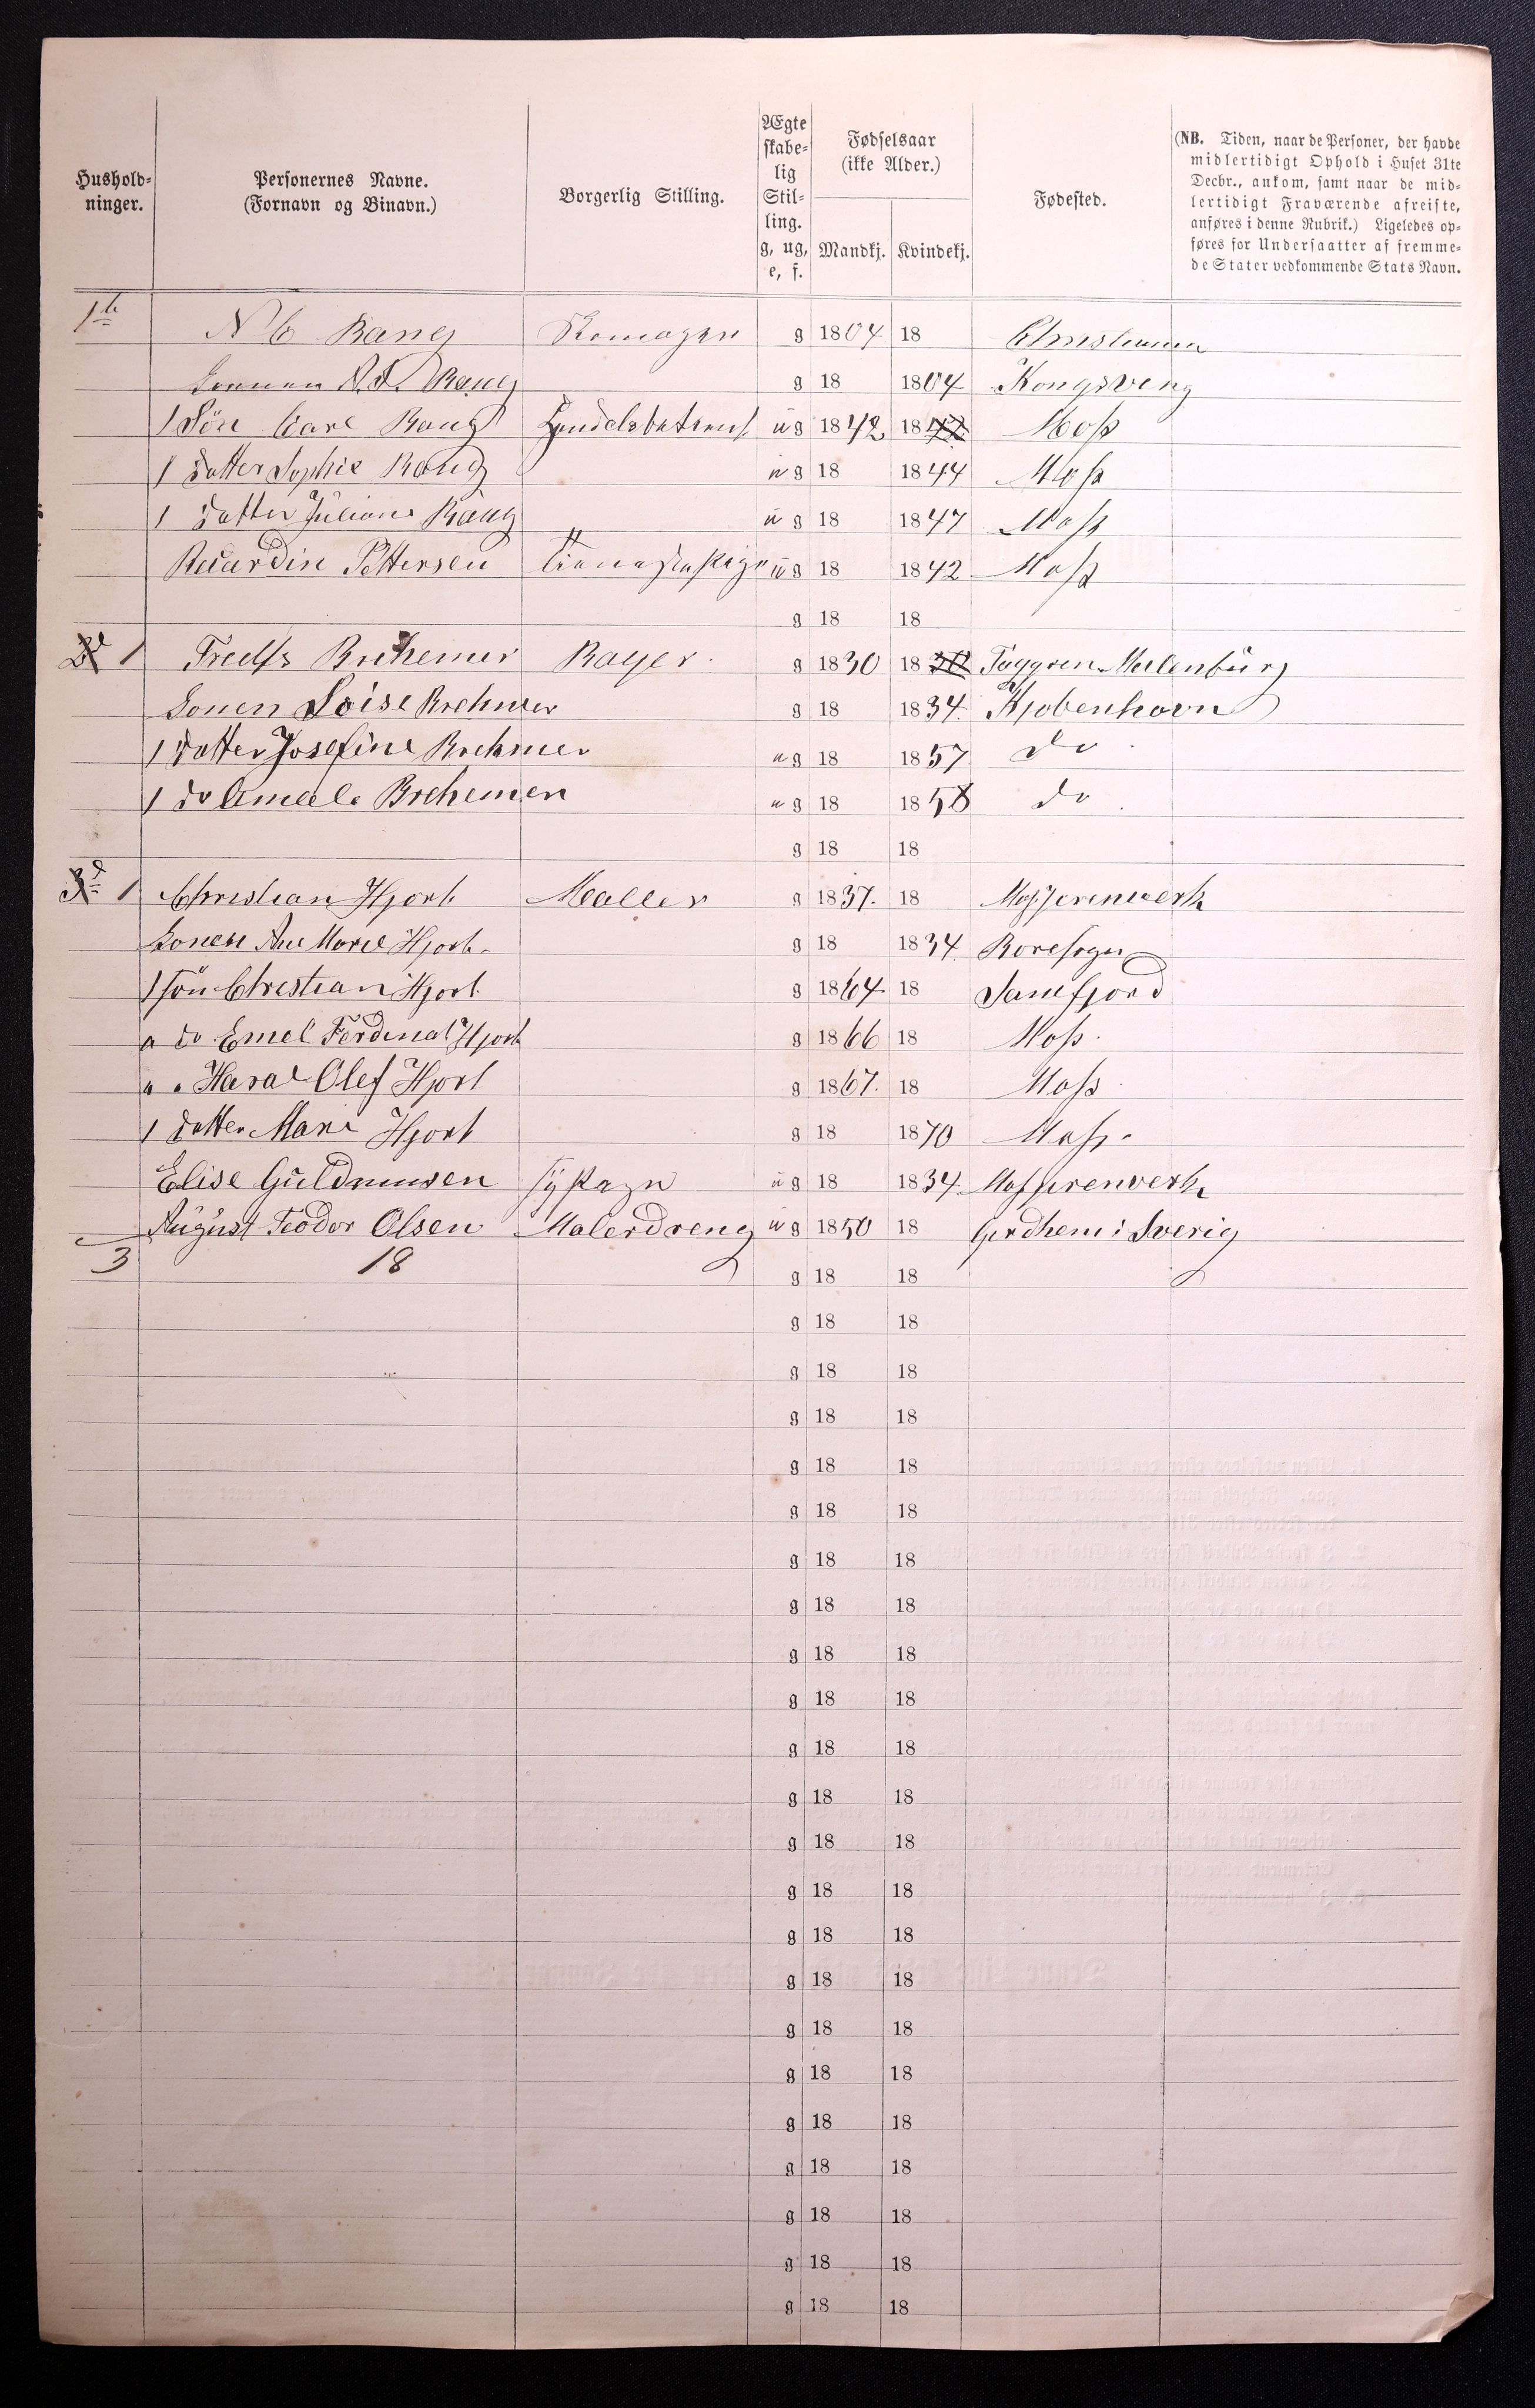 Hushold- ninger.
Personernes Navne. (Fornavn og Binavn.)
Borgerlig Stilling.
Ægte skabe- lig Stil- ling. g, ug, e, f.
Fødselsaar (ikke Alder.)
Mandkj. Kvindekj.
Fødested.
(NB. Tiden, naar de Personer, der havde
midlertidigt Ophold i Huset 31te
Decbr., ankom, samt naar de mid-
lertidigt Fraværende afreiste,
anføres i denne Rubrik.) Ligeledes op-
føres for Undersaatter af fremme-
de Stater vedkommende Stats Navn.
1te N C Bang Skomager g 1804 18 Christiania
Konen Bang g 18 1804 Kongsving
1 Søn Carl Bang Handelsbetient ug 1842 18 Moss
1 Datter Sophie Bang ug 18 1844 Moss
1 Datter Juliane Bang ug 18 1847 Moss
Ricardin Pettersen Tienestepige ug 18 1842 Moss
g 18 18
1 Fredfr Brehemer Bager g 1830 1830 Meelenburg
Konen Loise Brehmer g 18 1834 Kjobenhavn
1 Datter Josefine Brehmer ug 18 1857 do
1 do Ameele Brehemer ug 18 1858 do
g 18 18
1 Christian Hjort Maller g 1837. 18 Mossjernverk
Konen Ane Marie Hjort g 18 1834. Boresogn
1 søn Christian Hjort g 1864 18 Sanefjord
" do Emel Ferdinat Hjort g 1866 18 Moss
" " Haral Olef Hjort g 1867. 18 Moss
1 Datter Mari Hjort g 18 1870 Moss
Elise Guldmunsen sypagn ug 18 1834 Mossjrenverk
August Teodor Olsen Malerdreng ug 1850 18 Gerdhem i Sverig
3 18 g 18 18
g 18 18
g 18 18
g 18 18
g 18 18
g 18 18
g 18 18
g 18 18
g 18 18
g 18 18
g 18 18
g 18 18
g 18 18
g 18 18
g 18 18
g 18 18
g 18 18
g 18 18
g 18 18
g 18 18
g 18 18
g 18 18
g 18 18